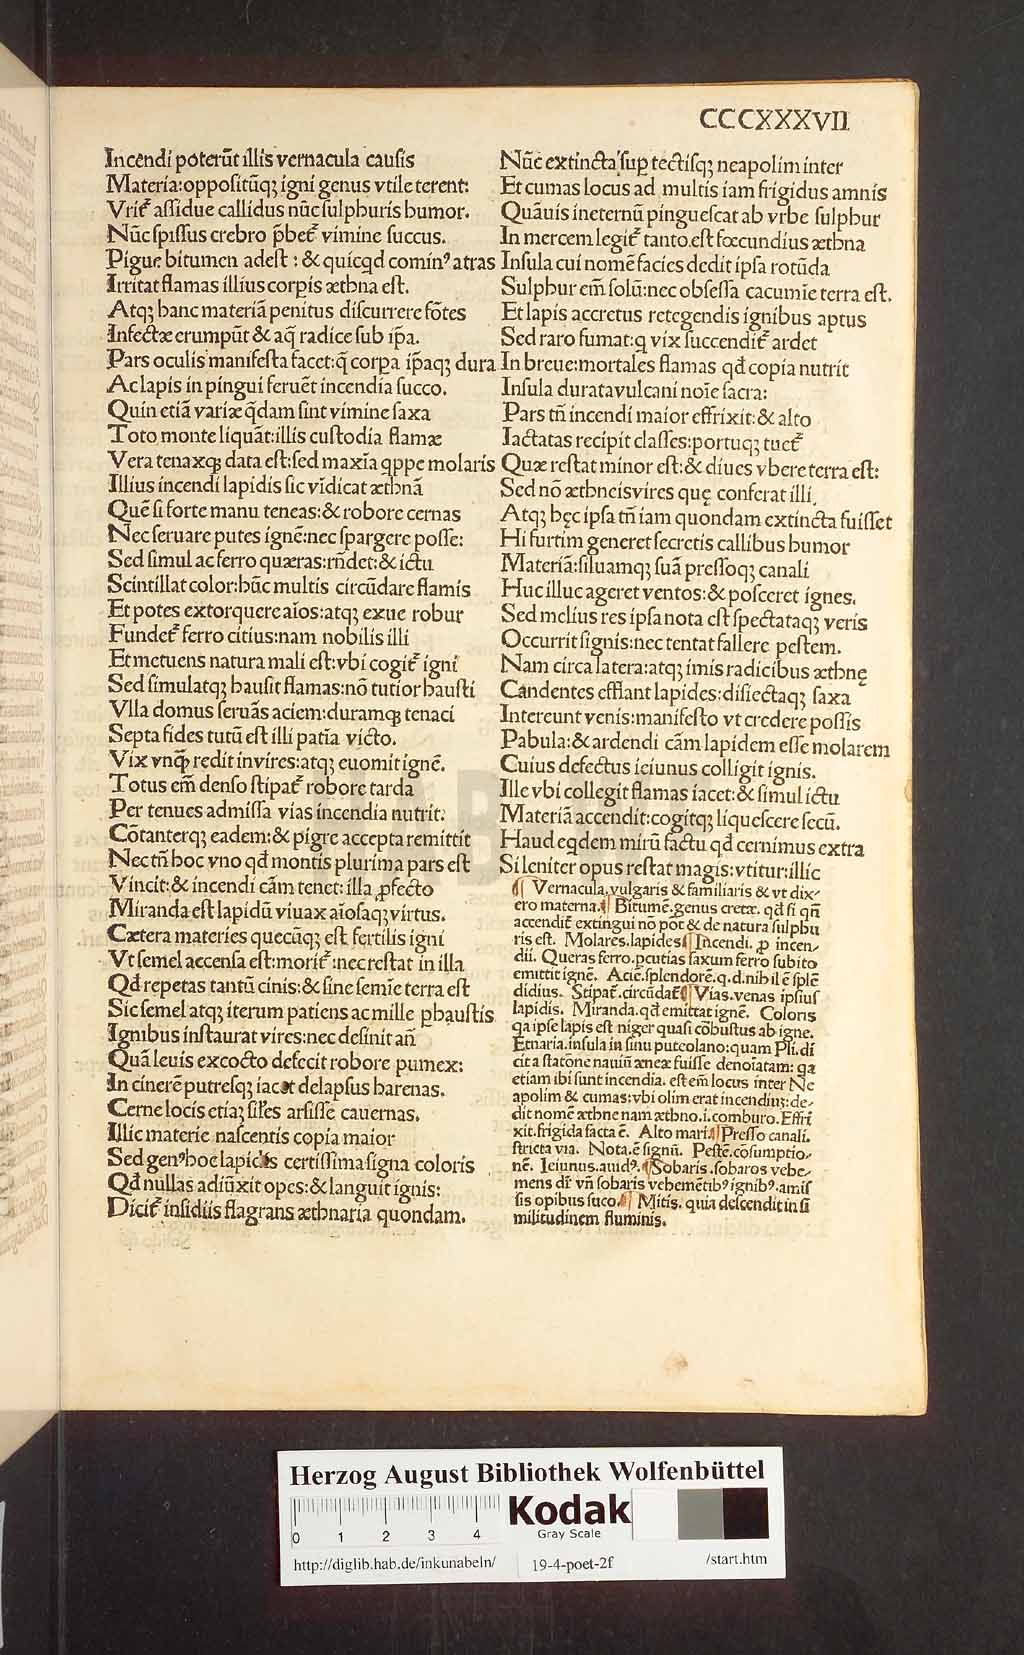 CCCXXXVII
Incendi poterūt illis vernacula causis
Materia:oppositūqꝫ igni genus vtile terent:
Vrit᷑ assidue callidus nūc sulphuris humor.
Nūc spissus crebro p̄bet᷑ vimine succus.
Pigue bitumen adest : & quicqd cominꝰ atras
Irritat flamas illius corpis æthna est.
Atqꝫ hanc materiā penitus discurrere fōtes
Infectæ erumpūt & aq̄ radice sub ip̄a.
Pars oculis manifesta facet:q̄ corpa ip̄aqꝫ dura
Ac lapis in pingui feruēt incendia succo.
Quin etiā variæ q̄dam sint vimine saxa
Toto monte liquāt:illis custodia flamæ
Vera tenaxqꝫ data est:sed maxīa qppe molaris
Illius incendi lapidis sic vīdicat æthnā
Quē si forte manu teneas:& robore cernas
Nec seruare putes ignē:nec spargere posse:
Sed simul ac ferro quæras:rn̄det:& ictu
Scintillat color:hūc multis circūdare flamis
Et potes extorquere aīos:atqꝫ exue robur
Fundet᷑ ferro citius:nam nobilis illi
Et metuens natura mali est:vbi cogit᷑ igni
Sed simulatqꝫ hausit flamas:nō tutior hausti
Vlla domus seruās aciem:duramqꝫ tenaci
Septa fides tutū est illi patīa victo.
Vix vnꝗ̄ redit in vires:atqꝫ euomit ignē.
Totus em̄ denso stipat᷑ robore tarda
Per tenues admissa vias incendia nutrit:
Cōtanterqꝫ eadem:& pigre accepta remittit
Nec tn̄ hoc vno qđ montis plurima pars est
Vincit:& incendi cām tenet: illa ꝓfecto
Miranda est lapidū viuax aīosaqꝫ virtus.
Cætera materies quecūqꝫ est fertilis igni
Vt semel accensa est:morit᷑:nec restat in illa
Qđ repetas tantū cinis:& sine semīe terra est
Sic semel atqꝫ iterum patiens ac mille ꝑhaustis
Ignibus instaurat vires:nec desinit an̄
Quā leuis excocto defecit robore pumex:
In cinerē putresqꝫ iacet delapsus harenas.
Cerne locis etiāꝫ sil̄es arsisse cauernas.
Illic materie nascentis copia maior
Sed genꝰ hoc lapidis certissima signa coloris
Qđ nullas adiūxit opes:& languit ignis:
Dicit᷑ insidiis flagrans æthnaria quondam.
Nūc extincta sup tectisqꝫ neapolim inter
Et cumas locus ad multis iam frigidus amnis
Quāuis ineternū pinguescat ab vrbe sulphur
In mercem legit᷑ tanto est fœcundius æthna
Insula cui nomē facies dedit ipsa rotūda
Sulphur em̄ solū:nec obsessa cacumīe terra est.
Et lapis accretus retegendis ignibus aptus
Sed raro fumat:q vix succendit᷑ ardet
In breue:mortales flamas qđ copia nutrit
Insula durata vulcani noīe sacra:
Pars tn̄ incendi maior effrixit:& alto
Iactatas recipit classes:portuqꝫ tuet᷑
Quæ restat minor est:& diues vbere terra est:
Sed nō æthneis vires quę conferat illi.
Atqꝫ hęc ipsa tn̄ iam quondam extincta fuisset
Hi furtim generet secretis callibus humor
Materiā:siluamqꝫ suā pressoqꝫ canali
Huc illuc ageret ventos:& posceret ignes.
Sed melius res ipsa nota est spectataqꝫ veris
Occurrit signis:nec tentat fallere pestem.
Nam circa latera:atqꝫ imis radicibus æthnę
Candentes efflant lapides:disiectaqꝫ saxa
Intereunt venis:manifesto vt credere possis
Pabula:& ardendi cām lapidem esse molarem
Cuius defectus ieiunus colligit ignis.
Ille vbi collegit flamas iacet:& simul ictu
Materiā accendit:cogitqꝫ liquescere secū.
Haud eqdem mirū factu qđ cernimus extra
Si leniter opus restat magis:vtitur:illic
¶ Vernacula.vulgaris & familiaris & vt dix-
ero materna.¶ Bitumē.genus cretæ. qđ si qn̄
accendit᷑ extingui nō pōt & de natura sulphu
ris est. Molares.lapides¶ Incendi. ꝓ incen-
dii. Queras ferro.ꝑcutias saxum ferro subito
emittit ignē. Aciē.splendorē.q.d.nihil ē splē
didius. Stipat᷑.circūdat᷑¶ Vias.venas ipsius
lapidis. Miranda.qđ emittat ignē. Coloris
qa ipse lapis est niger quasi cōbustus ab igne.
Etnaria.insula in sinu puteolano:quam Pli.di
cit a statōne nauiū æneæ fuisse denoīatam: qa
etiam ibi sunt incendia. est em̄ locus inter Ne
apolim & cumas:vbi olim erat incendiuꝫ:de-
dit nomē æthne nam æthno.i.comburo.Effri
xit.frigida facta ē. Alto mari.¶ Presso canali.
stricta via. Nota.ē signū. Pestē.cōsumptio-
nē. Ieiunus.auidꝰ.¶ Sobaris.sobaros vehe-
mens dr̄ vn̄ sobaris vehemētibꝰ ignibꝰ.amis
sis opibus suco.¶ Mitis. quia descendit in si
militudinem fluminis.
Herzog August Bibliothek Wolfenbüttel
0 1 2 3 4
Kodak
Gray Scale
http://diglib.hab.de/inkunabeln/ 19-4-poet-2f /start.htm